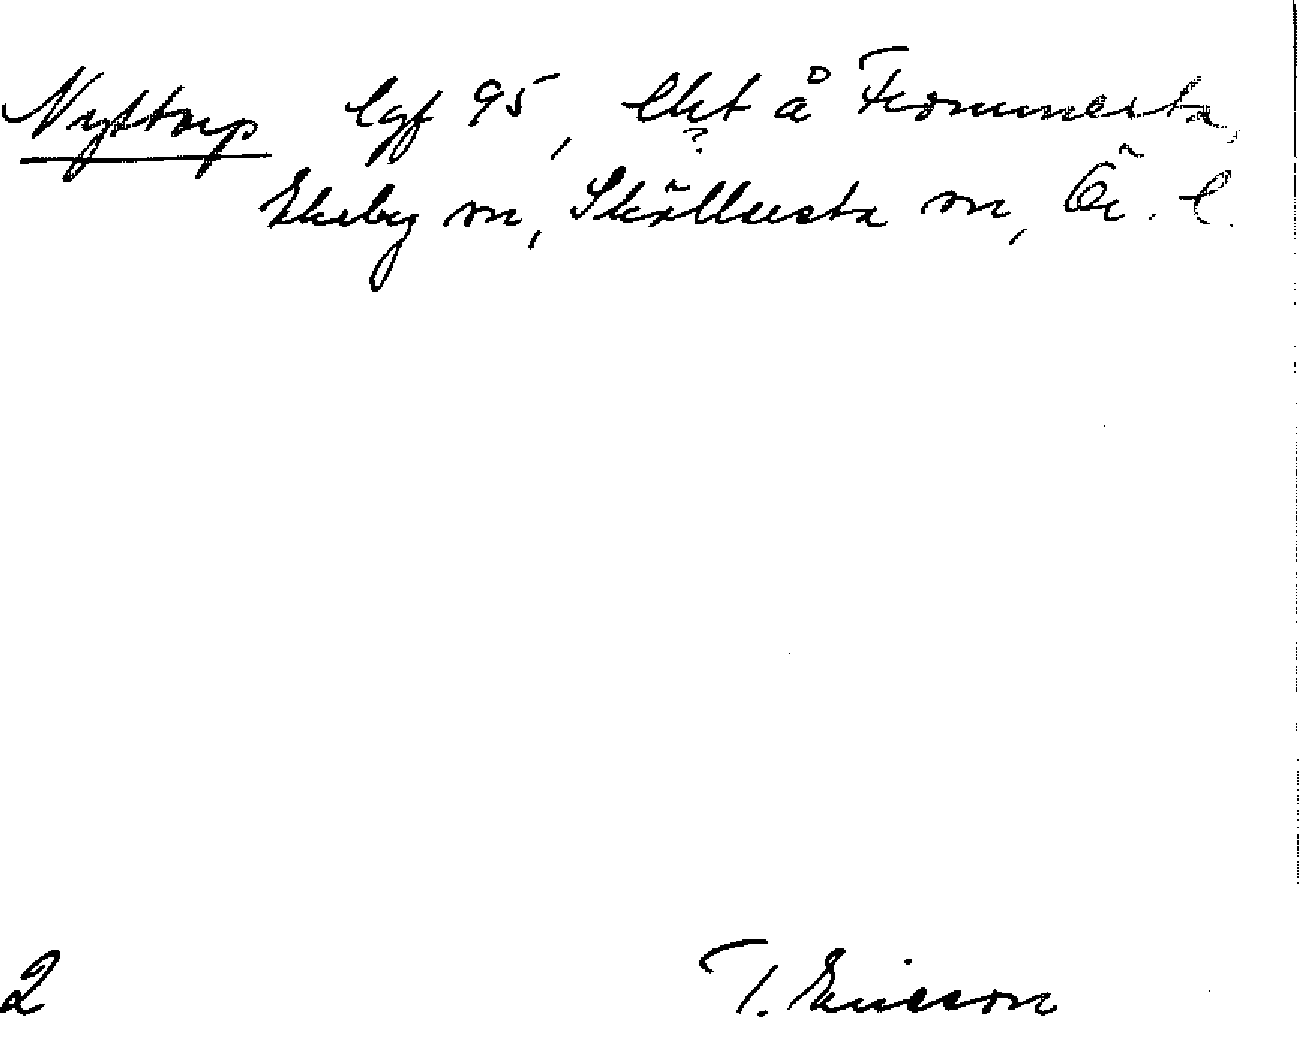 Nyttorp lgf 95, lht å Frommesta,
Ekeby sn, Sköllersta sn, Ör. l.
2 T. Ericson